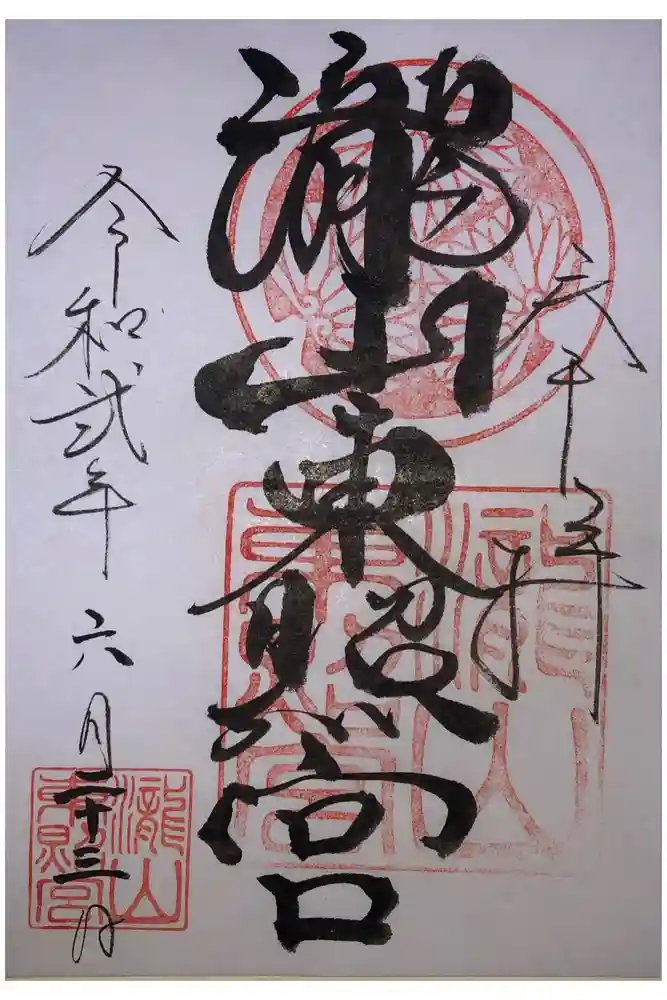 瀧山東照宮
瀧山
東照宮
令和弐年六月二十三日
瀧山
東照宮